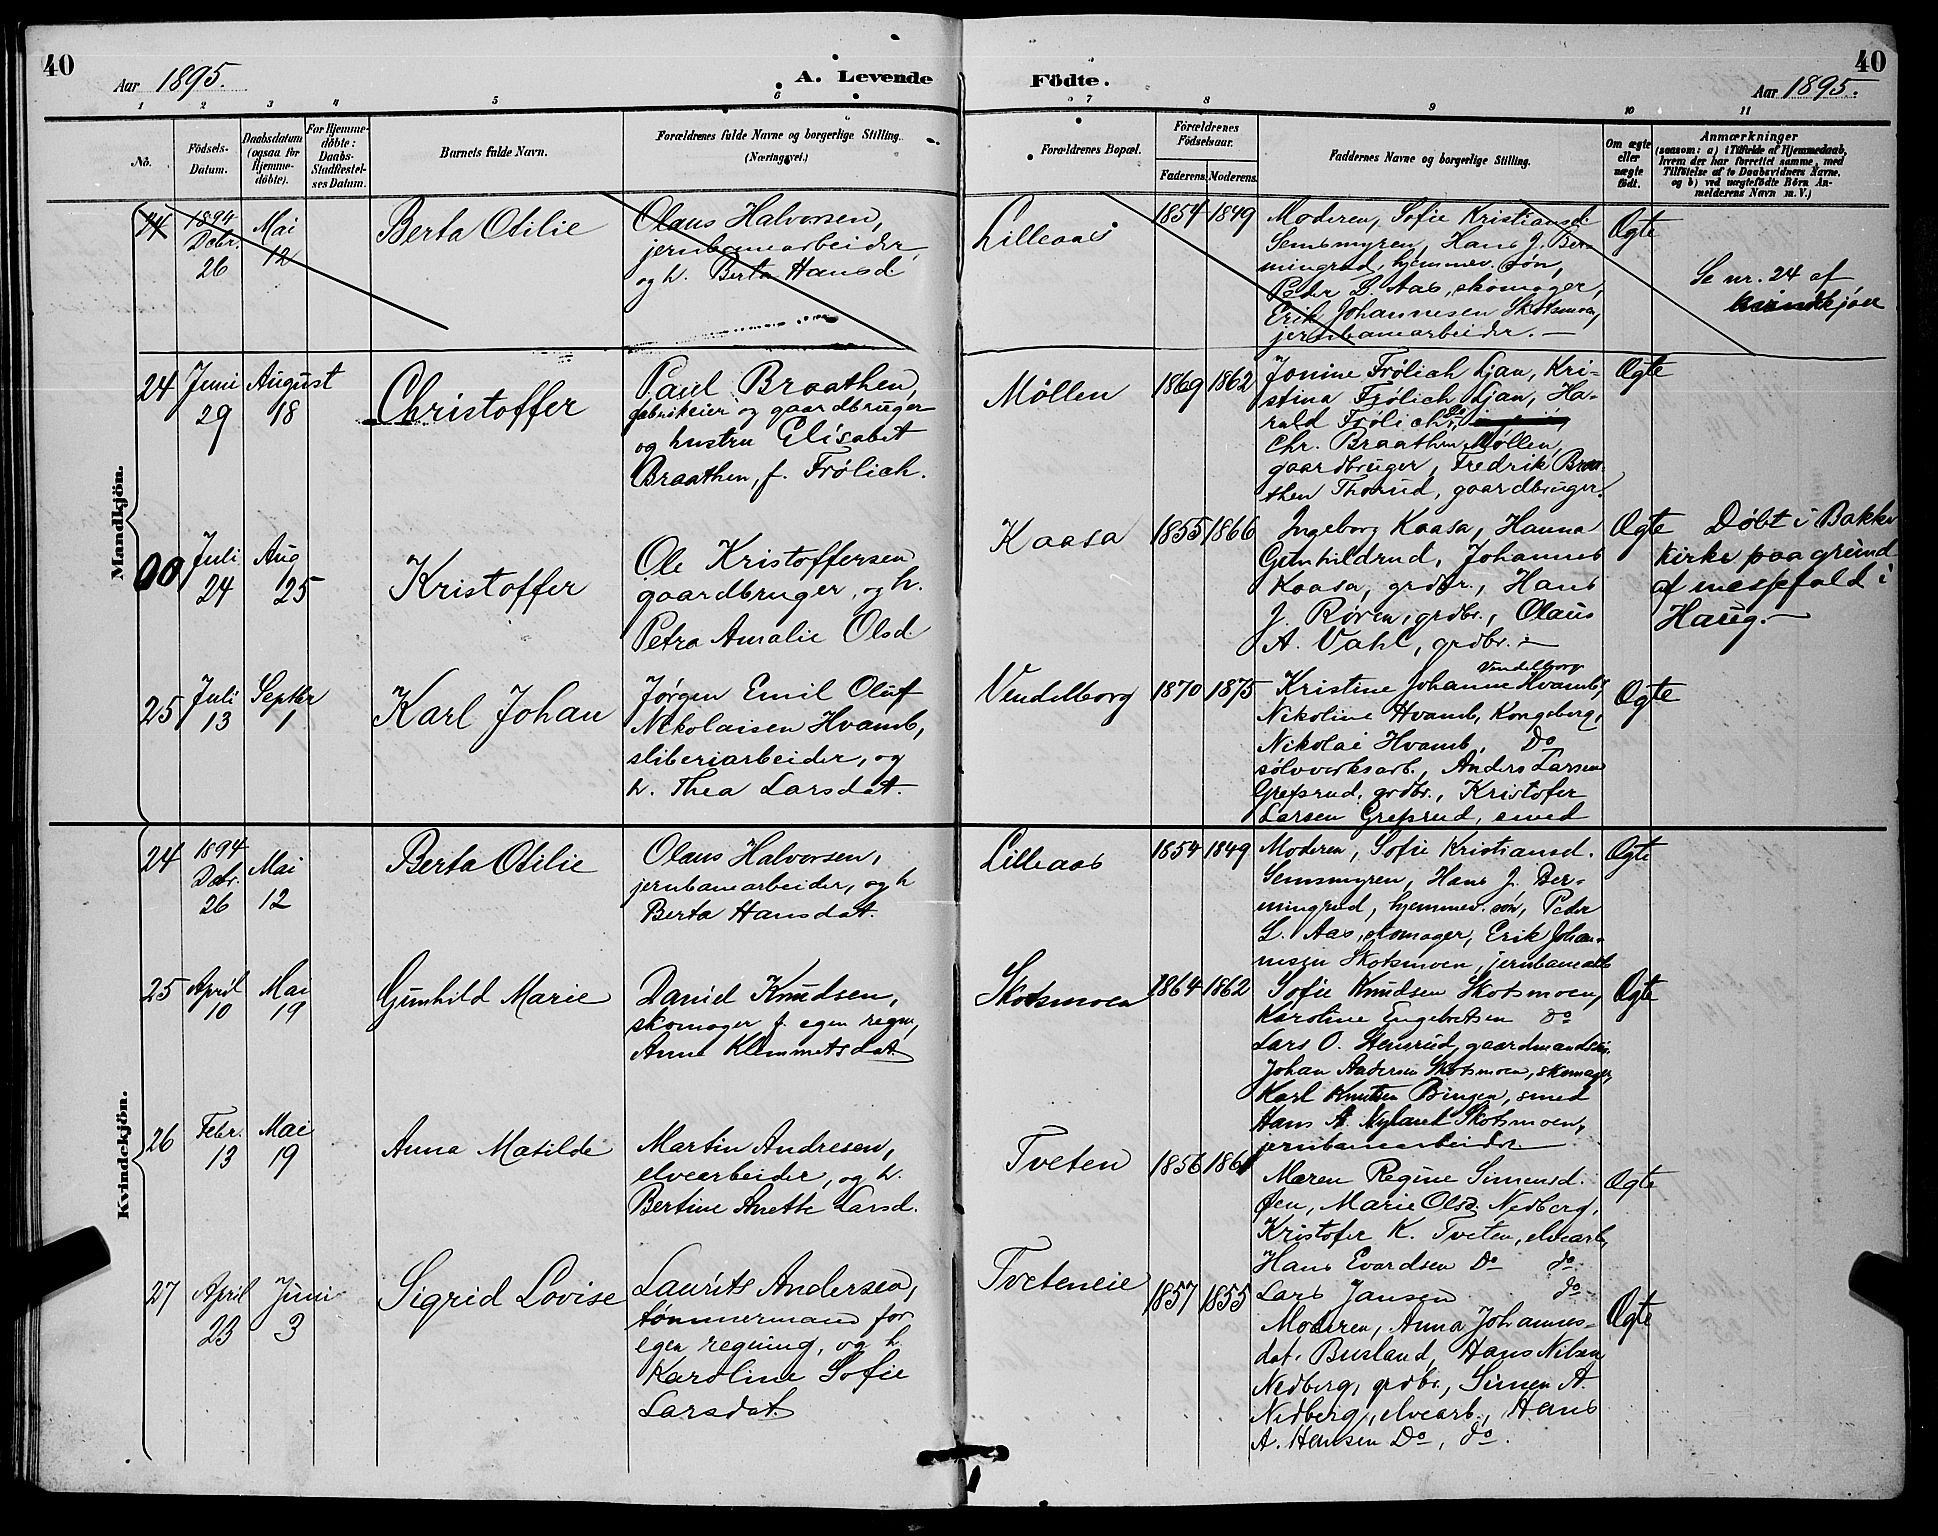 40
Aar 1895.
A. Levende
Födte.
Aar 1895.
40
1 2 3 4 5 6 7 8 9 10 11
No.
Födsels-
Datum.
Daabsdatum
(ogsaa for
Hjemme-
döbte).
For Hjemme-
döbte:
Daabs-
Stadfæstel-
ses Datum.
Barnets fulde Navn.
Forældrenes fulde Navne og borgerlige Stilling.
(Næringsvei.)
Forældrenes Bopæl.
Forældrenes
Födselsaar.
Faderens.
Moderens.
Faddernes Navne og borgerlige Stilling.
Om ægte
eller
uægte
födt.
Anmærkninger
(saasom: a) i Tilfælde af Hjemmedaab,
hvem der har forrettet samme, med
Tilföielse af to Daabsvidners Navne,
og b) ved uægtefödte Börn An-
melderens Navn m. V.)
Mandkjön.
24
1894
Decbr.
26
Mai
12
Berta Otilie
Olaus Halvorsen,
jernbanearbeider
og h. Berta Hansd.
Lilleaas
1854
1849
Moderen, Sofie Kristiansd.
Semsmyren, Hans J. Ber-
mingrud, hjemmev. søn,
Peder L. Aas, skomager,
Erik Johannesen Skotsmoen,
jernbanearbeider. —
Ægte
Se nr. 24 af
kvindekjøn
24
Juni
29
August
18
Christoffer
Paul Braathen,
fabrikeier og gaardbruger
og hustru Elisabet
Braathen, f. Frølich.
Møllen
1869
1862
Jonine Frølich Ljan, Kri-
stina Frølich Ljan, Ha-
rald Frølich, Do
Chr. Braathen Møllen
gaardbruger, Fredrik Braa-
then Thorud, gaardbruger.
Ægte
00
Juli
24
Aug
25
Kristoffer
Ole Kristoffersen
gaardbruger, og h.
Petra Amalie Olsd.
Kaasa
1855
1866
Ingeborg Kaasa, Hanna
Gunhildrud, Johannes
Kaasa, grdbr., Hans
J. Røren, grdbr., Olaus
A. Vahl, grdbr. —
Ægte
Døbt i Bakke
kirke paa grund
af messefald i
Haug. —
25
Juli
13
Septbr
1
Karl Johan
Jørgen Emil Oluf
Nikolaisen Hvamb,
sliberiarbeider, og
h. Thea Larsdat.
Vendelborg
1870
1875
Vendelborg
Kristine Johanne Hvamb,
Nikoline Hvamb, Kongsberg,
Nikolai Hvamb, Do
sølvverksarb., Anders Larsen
Grefsrud, grdbr., Kristofer
Larsen Grefsrud, smed
Ægte
Kvindekjön.
24
1894
Decbr.
26
Mai
12
Berta Otilie
Olaus Halvorsen,
jernbanearbeider, og h
Berta Hansdat.
Lilleaas
1854
1849
Moderen, Sofie Kristiansd.
Semsmyren, Hans J. Ber-
mingrud, hjemmev. søn, Peder
L. Aas, skomager, Erik Johan-
nesen Skotsmoen, jernbanearb
Ægte
25
April
10
Mai
19
Gunhild Marie
Daniel Knudsen,
skomager f. egen regn,
Anne Klemmetsdat.
Skotsmoen
1864
1862
Sofie Knudsen Skotsmoen,
Karoline Engebretsen do
Lars O. Stensrud, gaardmandssøn
Johan Andersen Skotsmoen, skomager,
Karl Knutsen Bingen, smed
Hans A. Myland Skotsmoen,
jernbanearbeider
Ægte
26
Febr.
13
Mai
19
Anna Matilde
Martin Andresen,
elvearbeider, og h.
Bertine Anette Larsd.
Tveten
1856
1861
Maren Regine Simensd.
Øen, Marie Olsd. Nedberg,
Kristofer K. Tveten, elvearb,
Hans Evardsen Do do
Lars Jansen do
Ægte
27
April
23
Juni
3
Sigrid Lovise
Laurits Andersen,
tømmermand for
egen regning, og h
Karoline Sofie
Larsdat.
Tveteneie
1857
1855
Moderen, Anna Johannes-
dat. Busland, Hans Nilsen
Nedberg, grdbr., Simen A.
Nedberg, elvearb., Hans
A. Hansen Do, do.
Ægte